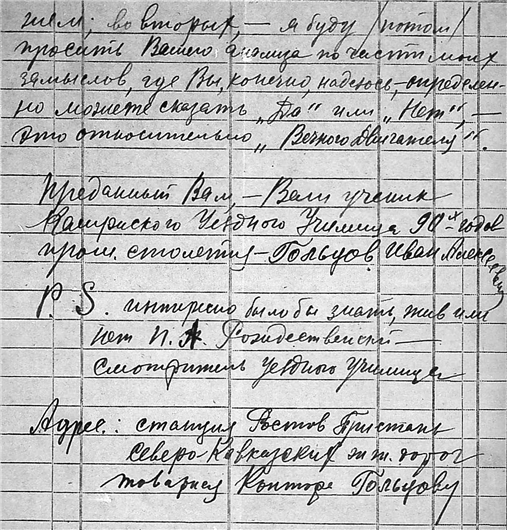 нем; во вторых, — я буду /потом/
просить Вашего анализа по части моих
замыслов, где Вы, конечно, надеюсь, — определен-
но можете сказать „Да“ или „Нет“, —
это относительно „Вечного Двигателя“.
Преданный Вам, — Ваш ученик
Уездного Училища 90-х годов
прош. столетия — Гольцов Иван Алексеевич
P. S. интересно было бы знать, жив или
нет П. А. Рождественский —
смотритель уездного училища
Адрес: станция Ростов Пристань
Северо-Кавказских ж. т. дорог
товарная Контора Гольцову